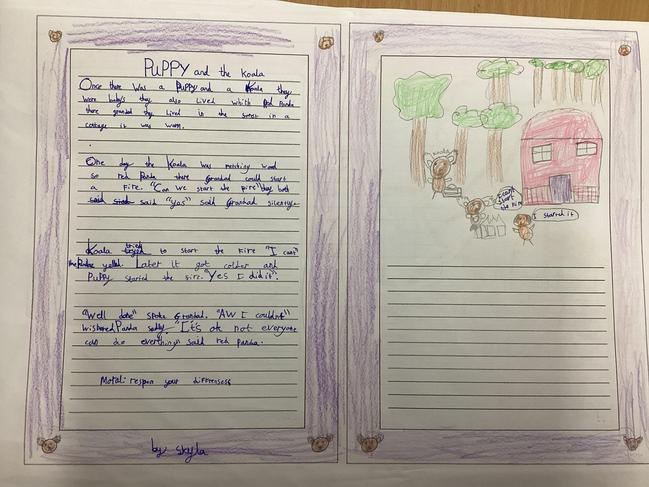 PUPPY and the Koala
Once there was a Puppy and a Koala they
were baby's they also lived which Red Panda
there grandad they lived in the forest in a
cottage it was warm.
One day the Koala was
wood
so red Panda there Grandad could start
a fire. "Can we start the fire" they both
said "yes" said Grandad silently
Koala tried to start the fire "I cant"
yelled. Later it got colder and
Puppy started the fire. "Yes I did it".
"Well done" spoke Grandad. "AW I couldn't"
Panda sadly. "It's ok not everyone
can do everthing" said red panda.
Moral: respon your differenses
by skyla
koala
I can't
start
the fire
I started it